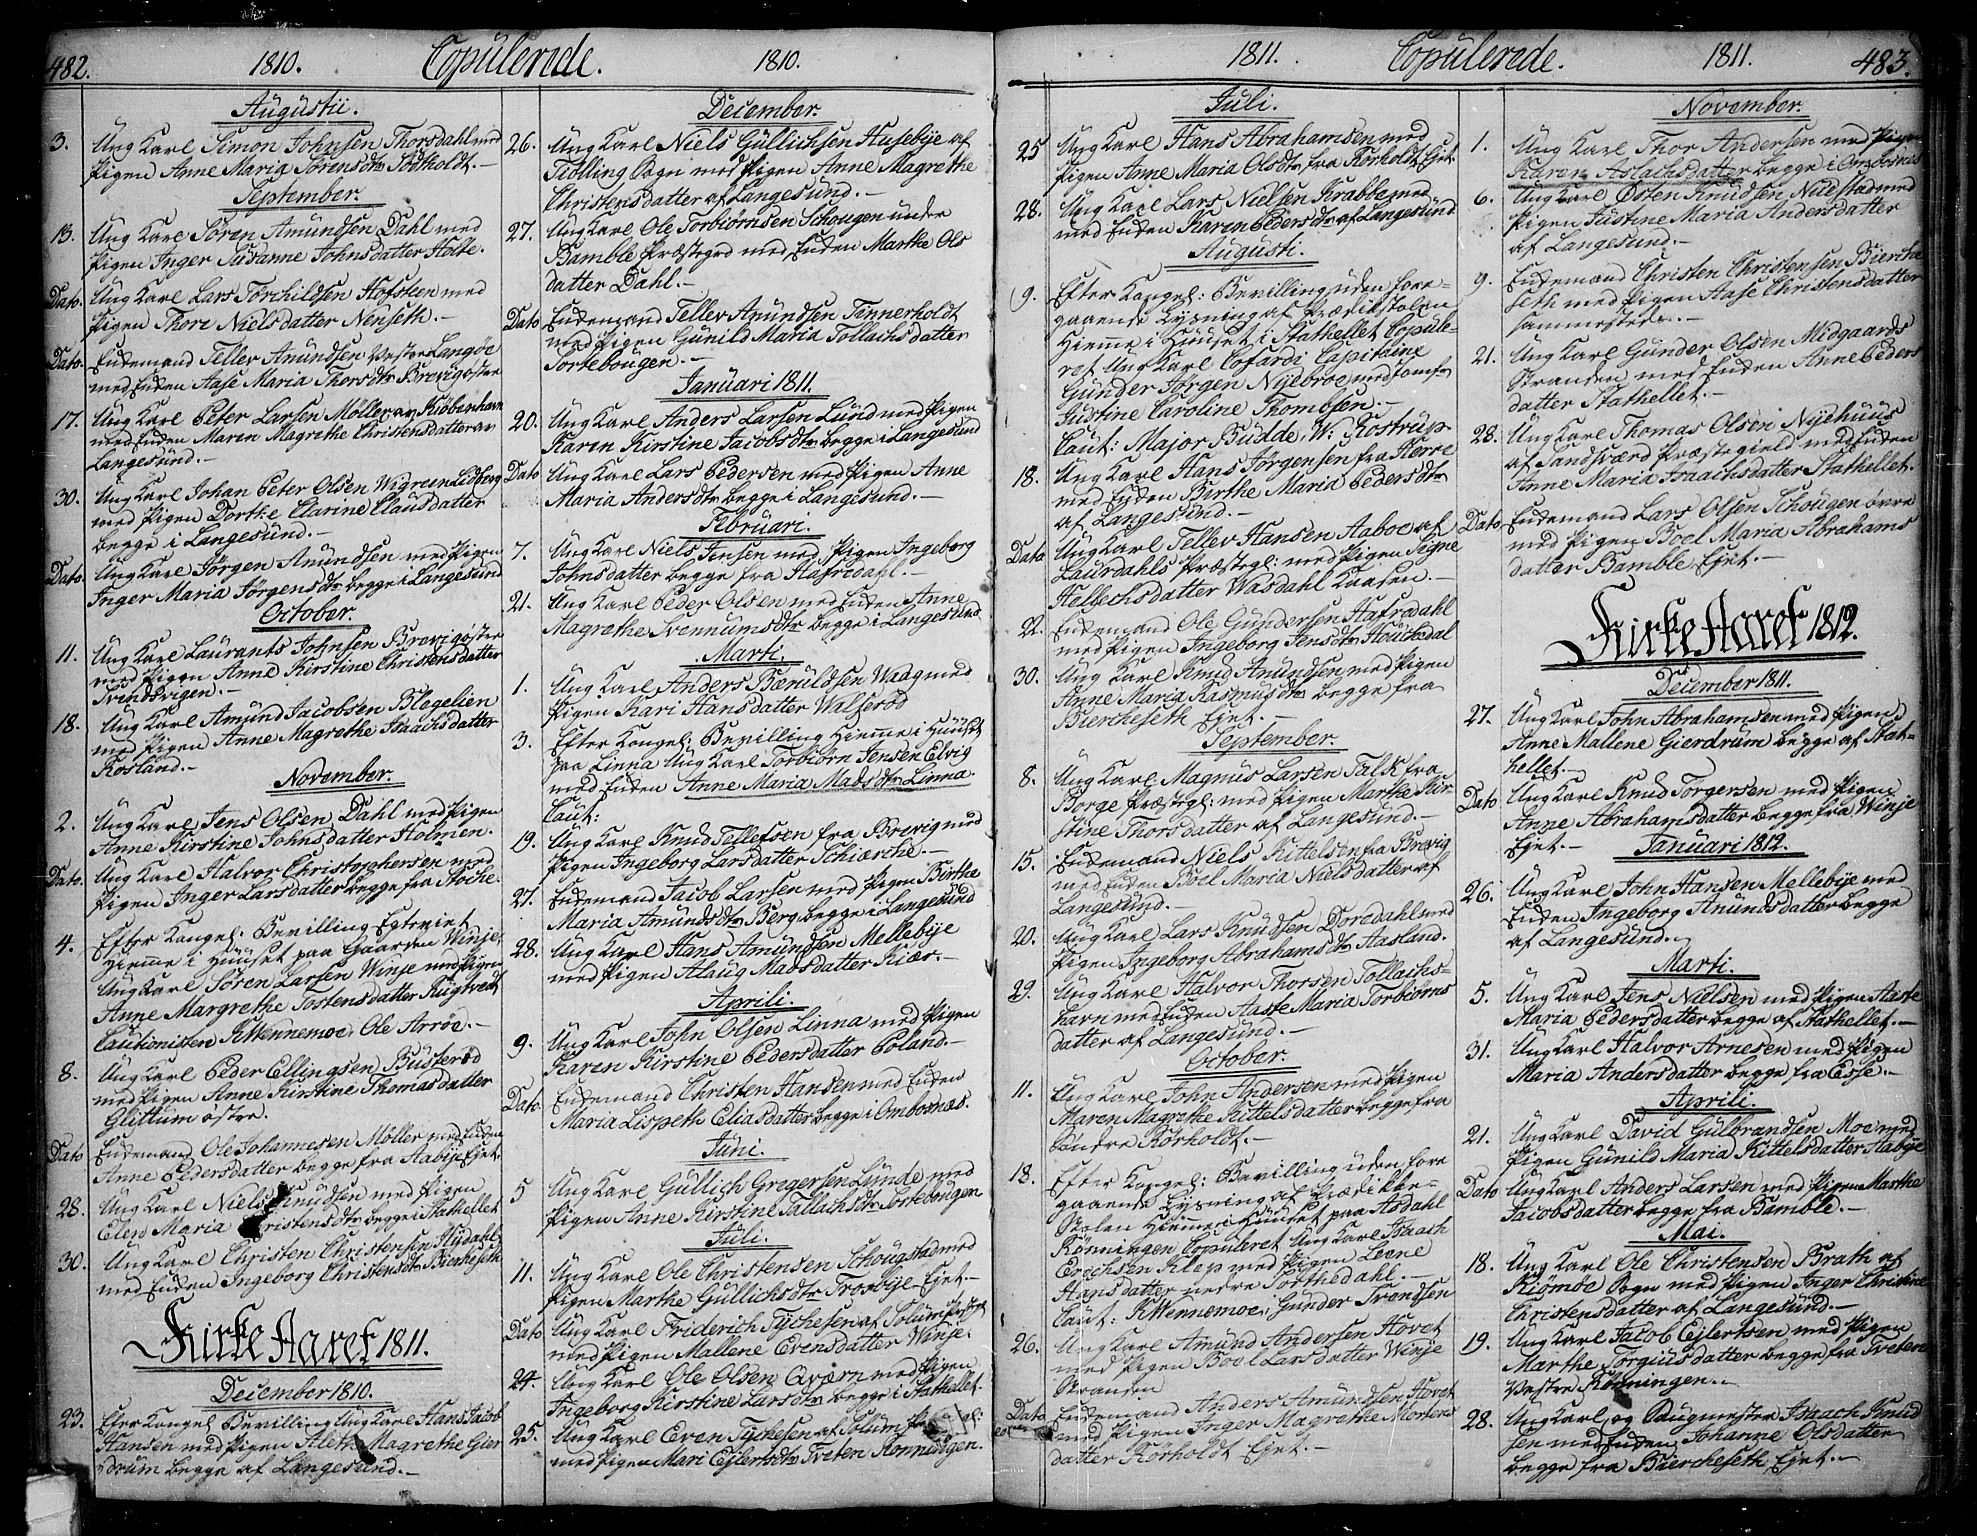 482. 1810. Copulerede. 1810.
Augustii.
3. Ung Karl Simon Johnsen Thorsdahl med
Pigen Anne Maria Sörensdtr Södtholdt.—
September.
13. Ung Karl Sören Amundsen Dahl med
Pigen Inger Susanne Johnsdatter Holte.
Dato. Ung Karl Lars Torchildsen Hofsteen med
Pigen Thore Nielsdatter Nenseth.—
Dato. Enkemand Teller Amundsen Vestre Langöe
med Enken Aase Maria Thorsdtr Brevigöstre
17. Ung Karl Peter Larsen Möller av Kiöbenhavn
med Enken Maren Magrethe Christensdatter av
Langesund.—
30. Ung Karl Johan Peter Olsen Wigreen Lidberg
med Pigen Dorthe Clarine Clausdatter
begge i Langesund.—
Dato. Ung Karl Jörgen Amundsen med Pigen
Inger Maria Jörgensdtr begge i Langesund
October.
11. Ung Karl Laurants Johnsen Brevigöster
med Pigen Anne Kirstine Christensdatter
Svindvigen.—
18. Ung Karl Amund Jacobsen Blegelien
med Pigen Anne Magrethe Isaachsdatter
Rosland.—
November.
2. Ung Karl Jens Olsen Dahl med Pigen
Anne Kirstine Johnsdatter Holmen.
Dato. Ung Karl Halvor Christophersen med
Pigen Inger Larsdatter begge fra Stoche.
4. Efter Kongel: Bevilling Egteviet
hieme i Huuset paa Gaarden Winje,
Ung Karl Sören Larsen Winje med Pigen
Anne Margrethe Tostensdatter Rugtvedt
Cautionisten K. Wennemoe, Ole Arröe.—
8. Ung Karl Peder Ellingsen Busteröd
med Pigen Anne Kirstine Thomasdatter
Glittum östre.
Dato Enkemand Ole Johannesen Möller med Enken
Anne Pedersdatter begge fra Aabije Ejet.
28. Ung Karl Niels Knudsen med Pigen
Elen Maria Christensdtr begge i Stathellet
30. Ung Karl Christen Christensen Flydahl
med Enken Ingeborg Christensdtr Bierkeseth
Kirke Aaret 1811.
December 1810.
23. Efter Kongel Bevilling Ung Karl Hans Jacob
Hansen med Pigen Aleth Magrethe Gier-
drum begge af Langesund.—
December.
26. Ung Karl Niels Gullichsen Husebije af
Fidling Sogn med Pigen Anne Magrethe
Christensdatter af Langesund.—
27. Ung Karl Ole Torbiörnsen Schougen under
Bamble Præstegrd med Enken Marthe Ols
datter Dahl.—
Dato Enkemand Teller Amundsen Tinnerholdt
med Pigen Gunild Maria Tollachsdatter
Sortebougen.—
Januari 1811.
20. Ung Karl Anders Larsen Lund med Pigen
Karen Kirstine Jacobsdtr begge i Langesund
Dato Ung Karl Lars Pedersen med Pigen Anne
Maria Andersdtr begge i Langesund.—
Februari.
7. Ung Karl Niels Jensen med Pigen Ingeborg
Johnsdatter begge fra Hafredahl.—
21. Ung Karl Peder Olsen med Enken Anne
Magrethe Svennumsdtr begge i Langesund
Marti.
1. Ung Karl Anders Bærulfsen Waag med
Pigen Kari Hansdatter Walleröd
3. Efter Kongel: Bevilling Hieme i Huuset
paa Linna Ung Karl Torbiörn Jensen Elvig
med Enken Anne Maria Madsdtr Linna.
Caut:
19. Ung Karl Knud Tellefsen fra Brevig med
Pigen Ingeborg Larsdatter Schiærche.—
27. Enkemand Jacob Larsen med Pigen Birthe
Maria Amundsdtr Berg begge i Langesund
28. Ung Karl Hans Amundsen Mellebije
med Pigen Aslaug Madsdatter Kiær.—
Aprili.
9. Ung Karl John Olsen Linna med Pigen
Karen Kirstine Pedersdatter Poland.—
Dato. Enkemand Christen Hansen med Enken
Maria Lispeth Eliasdatter begge i Ombosnæs.
Juni.
5 Ung Karl Gullich Gregersen Lunde med
Pigen Anne Kirstine Tallachsdtr Sortebougen
Juli.
11. Ung Karl Ole Christensen Schougstad med
Pigen Marthe Gullichsdtr Trosvije Ejet—
Dato Ung Karl Friderich Tychesen af Solum Præsteg:
med Pigen Mallene Evensdatter Winje.
24. Ung Karl Ole Olsen Qværn med Pigen
Ingeborg Kirstine Larsdtr begge i Stathellet.
25. Ung Karl Even Tychesen af Solum
med Pigen Mari Ejlertsdtr Tveten Rönningen.
1811. Copulerede. 1811. 483.
Juli.
25 Ung Karl Hans Abrahamsen med
Pigen Anne Maria Olsdtr fra Rörholdt Ejet.
28. Ung Karl Lars Nielsen Krabbe med
med Enken Karen Pedersdtr af Langesund.
Augusti.
9. Efter Kongel: Bevilling uden fore-
gaaende Lysning af Prædikstolen
Hieme i Huuset i Stathellet Copule-
ret Ung Karl Cofardi Capitaine
Gunder Jörgen Nyebroe med Jomfr
Justine Caroline Thombsen.—
Caut: Major Budde, W. Rostrup
18. Ung Karl Hans Jörgensen fra Herre
med Enken Birthe Maria Pedersdtr
af Langesund.—
Dato Ung Karl Tellev Hansen Aaboe af
Laurdahls Præstegl: med Pigen Signe
Hellechsdatter Wasdahl Kaasen.—
22. Enkemand Ole Gundersen Hafredahl
med Pigen Ingeborg Jensdtr Houkedal
30. Ung Karl Knud Amundsen med Pigen
Anne Maria Rasmusdtr begge fra
Biercheseth Ejet.—
September.
8. Ung Karl Magnus Larsen Falk fra
Borge Præstegl: med Pigen Marthe Kir-
stine Thorsdatter af Langesund.—
15. Enkemand Niels Kittelsen fra Brevig
med Enken Boel Maria Nielsdatter af
Langesund.—
20. Ung Karl Lars Knudsen Dordahl med
Pigen Ingeborg Abrahamsdtr Aasland.
29. Ung Karl Halvor Thorsen Tollachs-
havn med Enken Aaste Maria Torbiörns
datter af Langesund.—
October.
11. Ung Karl John Andersen med Pigen
Maren Magrethe Kittelsdatter begge fra
Söndre Rörholdt.—
18. Efter Kongel: Bevilling uden fore
gaaende Lysning af Prædikke-
Stolen Hieme i Huuset paa Asdahl
Rönningen Copuleret Ung Karl Isaach
Erichsen Klep med Pigen Leene
Hansdatter nedre Torthedahl.—
Caut: K. Wennemoe, Gunder Trondsen
26. Ung Karl Amund Andersen Hovet
med Pigen Boel Larsdatter Winje
Stranden
Dato Enkemand Anders Amundsen Hovet
med Pigen Inger Magrethe Mortens
datter Rorholdt Ejet.—
November.
1. Ung Karl Thor Andersen med Pigen
Karen Aslaksdatter begge i Ombosnes
6. Ung Karl Östen Knudsen Nuestad med
Pigen Justine Maria Andersdatter
af Langesund.—
9. Enkemand Christen Christensen Bierche
seth med Pigen Aase Christensdatter
sammesteds.—
21. Ung Karl Gunder Olsen Midgaards
Stranden med Enken Anne Peders
datter Stathellet.—
28. Ung Karl Thomas Olsen Nyehuus
af Sandsværd Præstegield med Enken
Anne Maria Isaachsdatter Stathellet.
Dato Enkemand Lars Olsen Schougen övre
med Pigen Boel Maria Abrahams
datter Bamble Ejet.—
Kirke Aaret 1812.
December 1811.
27. Ung Karl John Abrahamsen med Pigen
Anne Mallene Gierdrum begge af Stat-
hellet.—
Dato Ung Karl Knud Torgersen med Pigen
Anne Abrahamsdatter begge fra Winje
Ejet.—
Januari 1812.
26. Ung Karl John Hansen Mellebije med
Enken Ingeborg Anundsdatter begge
af Langesund.—
Marti.
5. Ung Karl Jens Nielsen med Pigen Aaste
Maria Pedersdatter begge af Stathellet.—
31. Ung Karl Halvor Arnesen med Pigen
Maria Andersdatter begge fra Esse.—
Aprili.
21. Ung Karl David Gulbrandsen Moe med
Pigen Gunild Maria Kittelsdatter Aabije
Dato Ung Karl Anders Larsen med Pigen Marthe
Jacobsdatter begge fra Bamble.—
Mai.
18. Ung Karl Ole Christensen Brath af
Kiömöe Sogn med Pigen Inger Christine
Christensdatter af Langesund.—
19. Ung Karl Jacob Ejlertsen med Pigen
Marthe Torgiusdatter begge fra Tveten
Vestre Rönningen.—
28. Ung Karl og Bugmester Isaach Knud
sen med Enken Johanne Olsdatter
begge fra Biercheseth Ejet.—